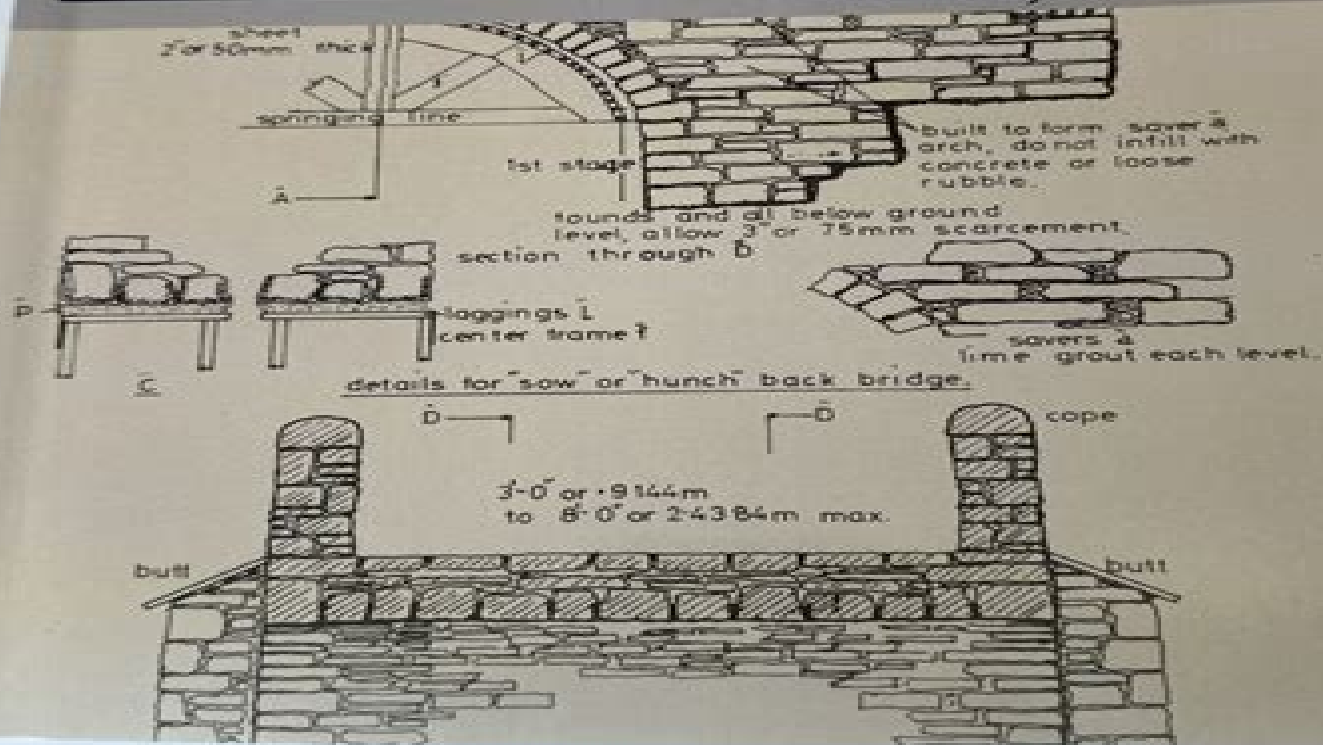 sheet
2" or 50mm thick
springing line
1st stage
A
built to form saver a
arch, do not infill with
concrete or loose
rubble.
founds and all below ground
level, allow 3" or 75mm scarcement.
section through D
P
laggings L
center frame f
C
savers a
lime grout each level.
details for "sow" or "hunch" back bridge.
D
D
cope
3'-0" or .9144m
to 8'-0" or 2.4384m max.
butt
butt